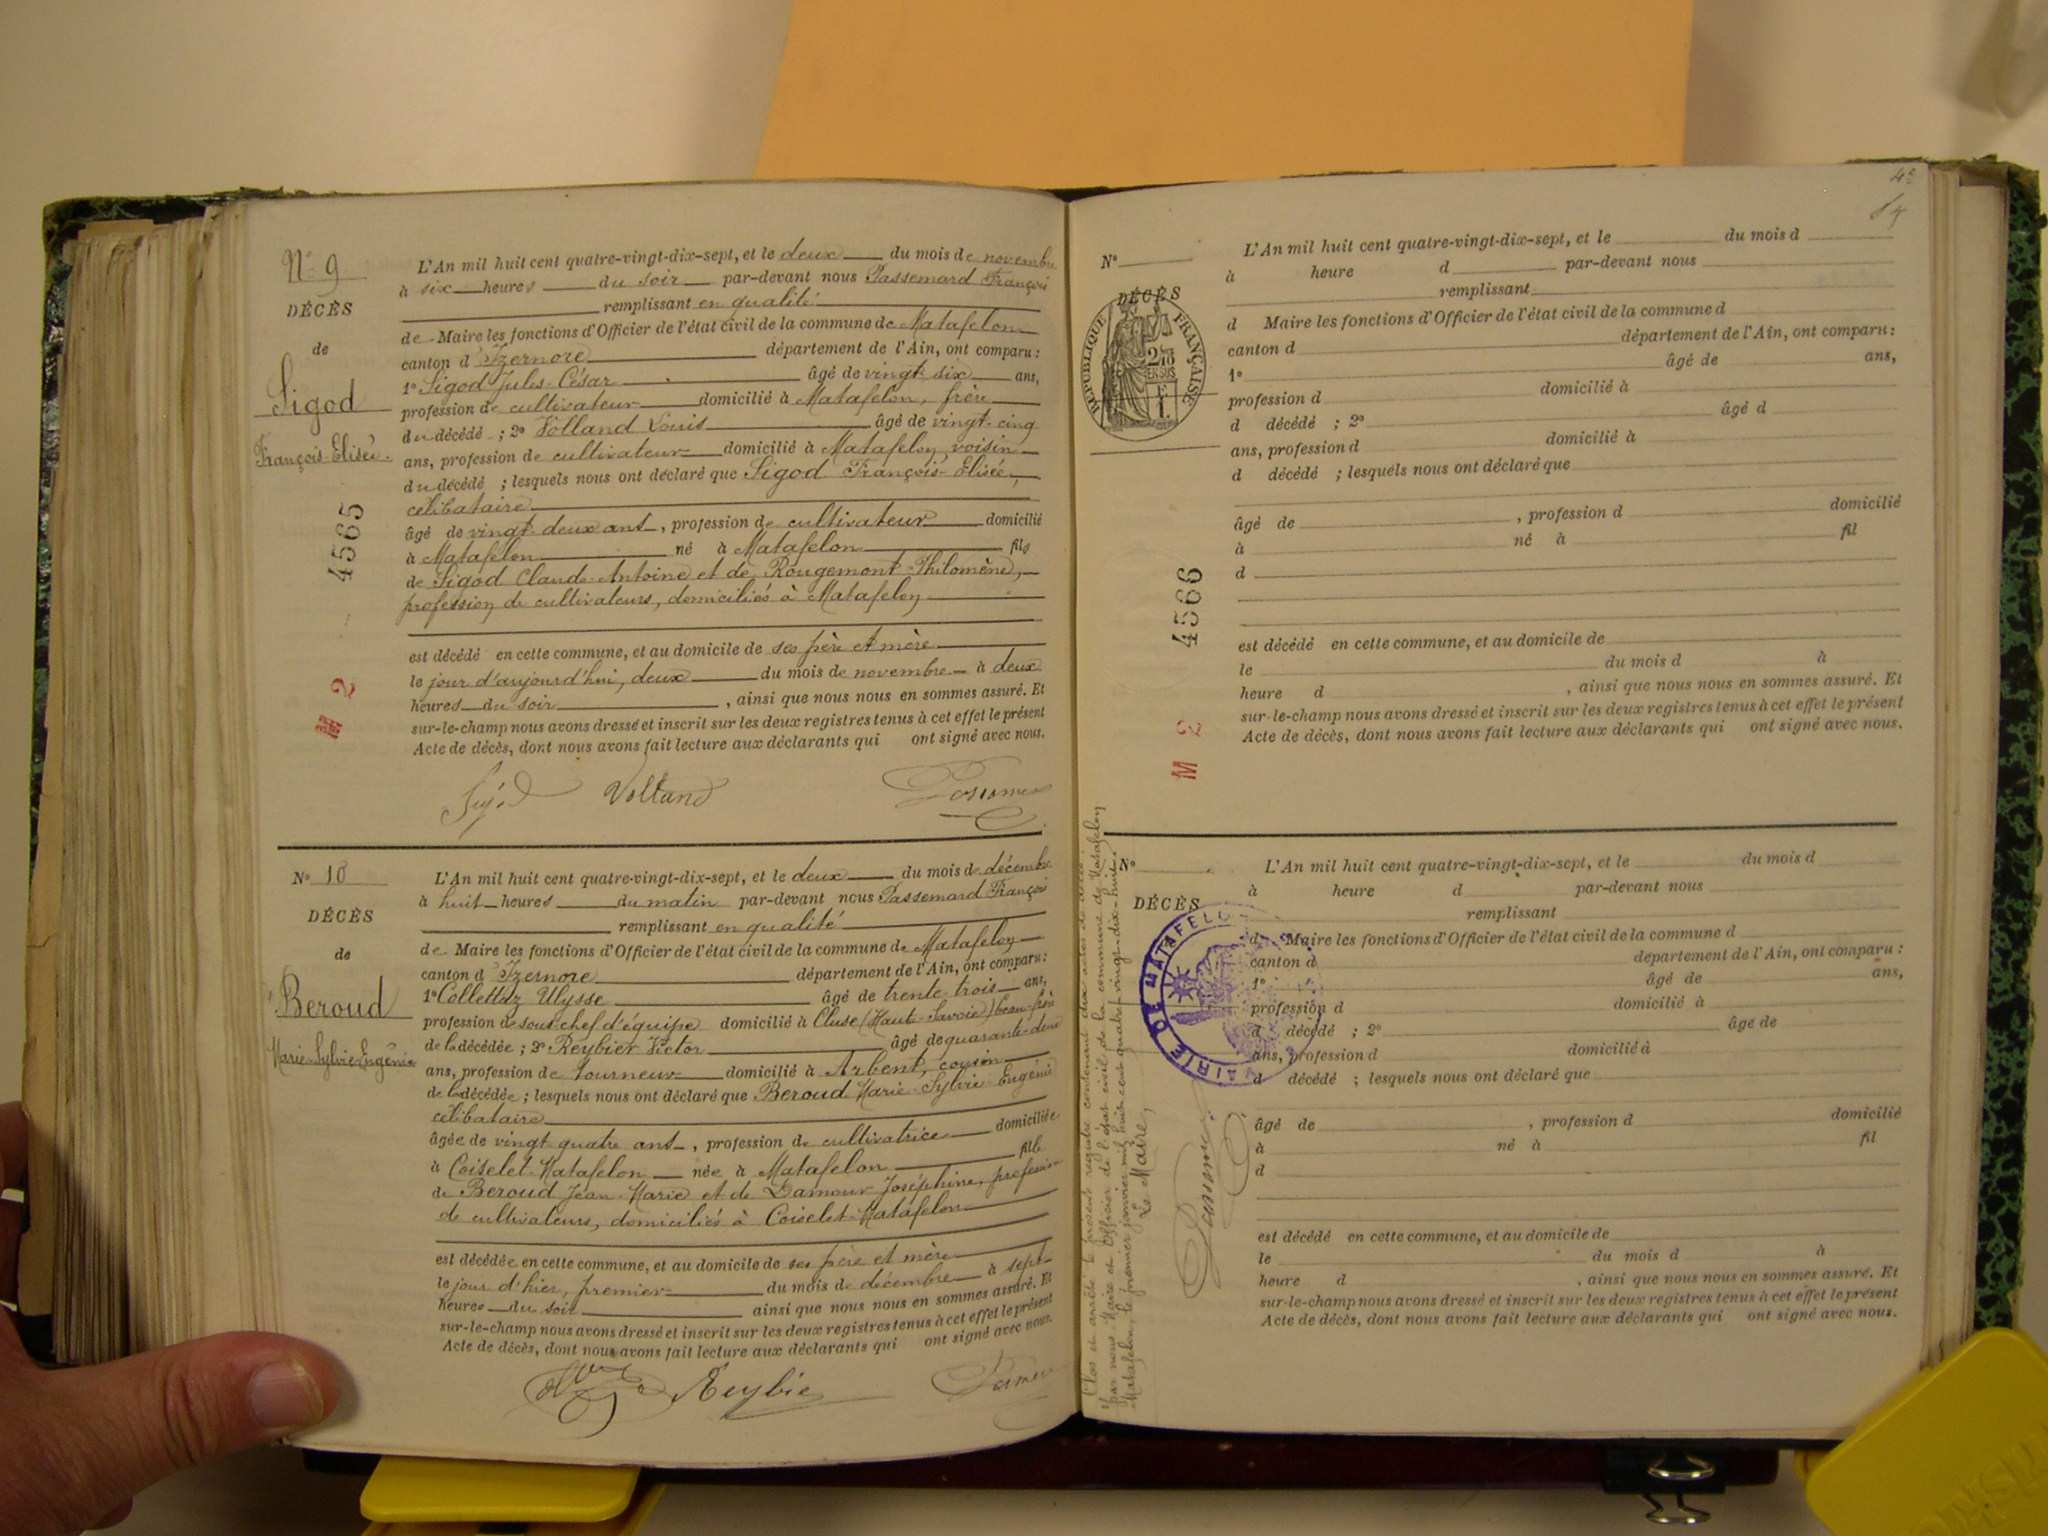 N° 9
DÉCÈS
de
Sigod
François-Elisée.
4565
M 2
L'An mil huit cent quatre-vingt-dix-sept, et le deux du mois de novembre
à six heures du soir par-devant nous Passemard François
remplissant en qualité
de Maire les fonctions d'Officier de l'état civil de la commune de Matafelon
canton d'Izernore département de l'Ain, ont comparu :
1° Sigod Jules-César âgé de vingt-six ans,
profession de cultivateur domicilié à Matafelon, frère
du décédé ; 2° Volland Louis âgé de vingt-cinq
ans, profession de cultivateur domicilié à Matafelon, voisin
du décédé ; lesquels nous ont déclaré que Sigod François-Elisée,
célibataire
âgé de vingt-deux ans, profession de cultivateur domicilié
à Matafelon né à Matafelon fils
de Sigod Claude-Antoine et de Rougemont-Philomène,
profession de cultivateurs, domiciliés à Matafelon
est décédé en cette commune, et au domicile de ses père et mère
le jour d'aujourd'hui, deux du mois de novembre à deux
heures du soir, ainsi que nous nous en sommes assuré. Et
sur-le-champ nous avons dressé et inscrit sur les deux registres tenus à cet effet le présent
Acte de décès, dont nous avons fait lecture aux déclarants qui ont signé avec nous.
Sigod Volland
N° 10
DÉCÈS
de
Beroud
Marie-Sylvie-Eugénie
L'An mil huit cent quatre-vingt-dix-sept, et le deux du mois de décembre
à huit heures du matin par-devant nous Passemard François
remplissant en qualité
de Maire les fonctions d'Officier de l'état civil de la commune de Matafelon
canton d'Izernore département de l'Ain, ont comparu :
1° Collettaz Ulysse âgé de trente-trois ans,
profession de sous-chef d'équipe domicilié à Cluse (Haute-Savoie) beau-frère
de la décédée ; 2° Reybier Victor âgé de quarante-deux
ans, profession de tourneur domicilié à Arbent, cousin
de la décédée ; lesquels nous ont déclaré que Beroud Marie-Sylvie-Eugénie
célibataire
âgée de vingt-quatre ans, profession de cultivatrice domiciliée
à Coiselet-Matafelon née à Matafelon fille
de Beroud Jean-Marie et de Damour Joséphine, profession
de cultivateurs, domiciliés à Coiselet-Matafelon
est décédée en cette commune, et au domicile de ses père et mère
le jour d'hier, premier du mois de décembre à sept
heures du soir ainsi que nous nous en sommes assuré. Et
sur-le-champ nous avons dressé et inscrit sur les deux registres tenus à cet effet le présent
Acte de décès, dont nous avons fait lecture aux déclarants qui ont signé avec nous.
Reybie
N°
DÉCÈS
RÉPUBLIQUE FRANÇAISE
4566
M 2
L'An mil huit cent quatre-vingt-dix-sept, et le du mois d
à heure d par-devant nous
remplissant
d Maire les fonctions d'Officier de l'état civil de la commune d
canton d département de l'Ain, ont comparu :
1° âgé de ans,
profession d domicilié à
d décédé ; 2° âgé d
ans, profession d domicilié à
d décédé ; lesquels nous ont déclaré que
âgé de , profession d domicilié
à né à fil
d
est décédé en cette commune, et au domicile de
le du mois d à
heure d , ainsi que nous nous en sommes assuré. Et
sur-le-champ nous avons dressé et inscrit sur les deux registres tenus à cet effet le présent
Acte de décès, dont nous avons fait lecture aux déclarants qui ont signé avec nous.
Clos et arrêté le présent registre contenant dix actes de décès
par nous Maire et Officier de l'état civil de la commune de Matafelon
Matafelon, le premier janvier mil huit cent quatre-vingt-dix-huit.
Le Maire,
N°
DÉCÈS
MAIRIE DE MATAFELON
L'An mil huit cent quatre-vingt-dix-sept, et le du mois d
à heure d par-devant nous
remplissant
d Maire les fonctions d'Officier de l'état civil de la commune d
canton d département de l'Ain, ont comparu :
1° âgé de ans,
profession d domicilié à
d décédé ; 2° âge de
ans, profession d domicilié à
d décédé ; lesquels nous ont déclaré que
âgé de , profession d domicilié
à né à fil
d
est décédé en cette commune, et au domicile de
le du mois d à
heure d , ainsi que nous nous en sommes assuré. Et
sur-le-champ nous avons dressé et inscrit sur les deux registres tenus à cet effet le présent
Acte de décès, dont nous avons fait lecture aux déclarants qui ont signé avec nous.